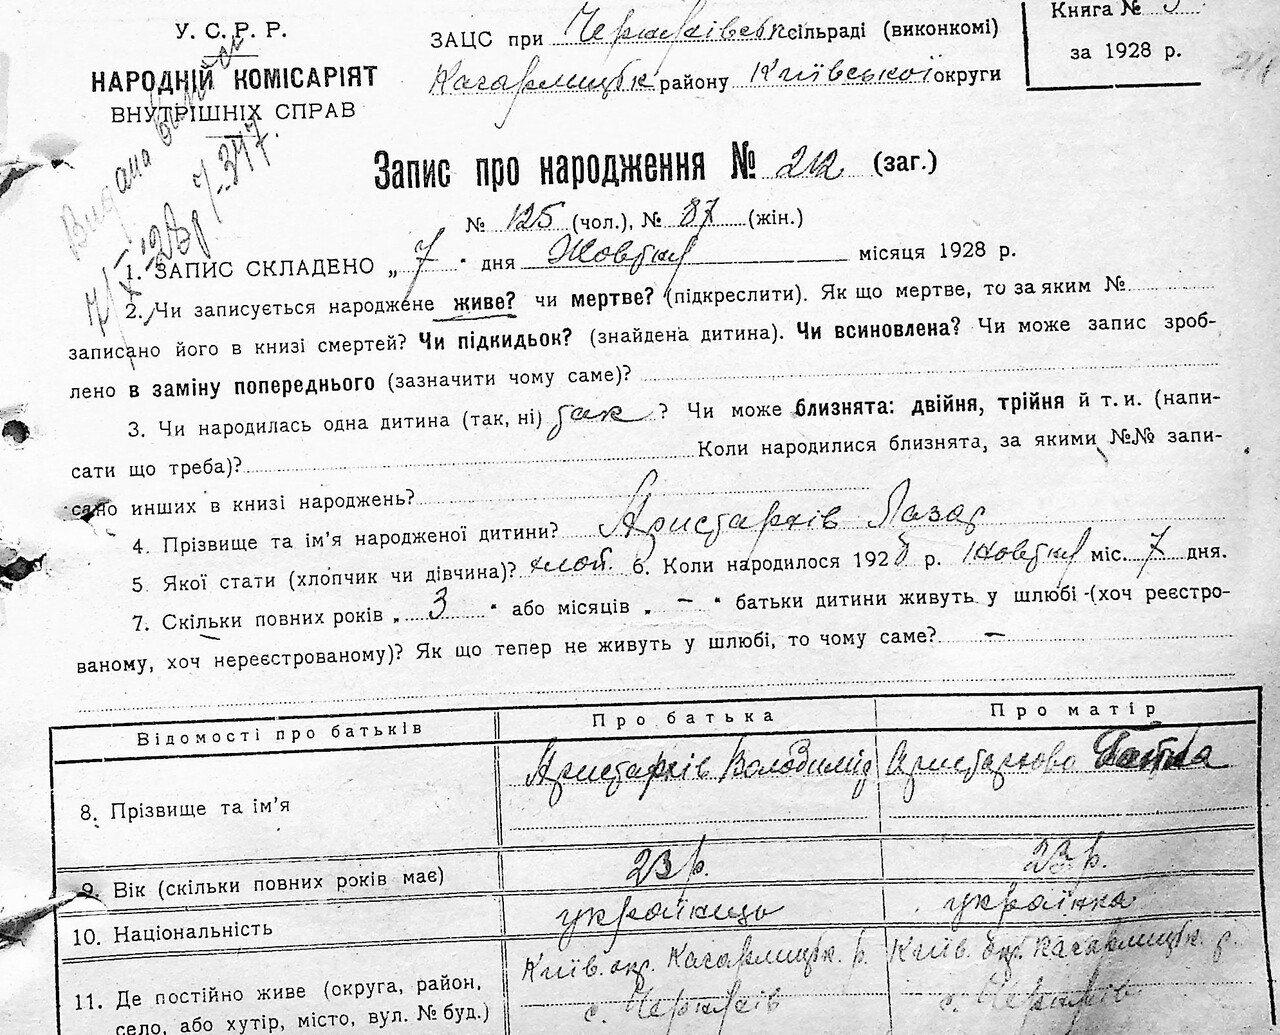 У. С. Р. Р.
НАРОДНІЙ КОМІСАРІЯТ
ВНУТРІШНІХ СПРАВ
ЗАЦС при сільраді (виконкомі)
Кагарлицьк району Київської округи
Книга №
за 1928 р.
Видана
Запис про народження № 212 (заг.)
№ 125 (чол.), № 87 (жін.)
1. ЗАПИС СКЛАДЕНО „ 7 " дня Жовтня місяця 1928 р.
2. Чи записується народжене живе? чи мертве? (підкреслити). Як що мертве, то за яким №
записано його в книзі смертей? Чи підкидьок? (знайдена дитина). Чи всиновлена? Чи може запис зроб-
лено в заміну попереднього (зазначити чому саме)?
3. Чи народилась одна дитина (так, ні) так ? Чи може близнята: двійня, трійня й т. и. (напи-
сати що треба)? Коли народилися близнята, за якими №№ запи-
сано инших в книзі народжень?
4. Прізвище та ім’я народженої дитини? Аристархів Лазар
5. Якої стати (хлопчик чи дівчина)? хлоп. 6. Коли народилося 1928 р. Жовтня міс. 7 дня.
7. Скільки повних років „ 3 " або місяців „ – " батьки дитини живуть у шлюбі (хоч реєстро-
ваному, хоч нереєстрованому)? Як що тепер не живуть у шлюбі, то чому саме? –
Відомості про батьків Про батька Про матір
8. Прізвище та ім’я Аристархів Володимір Аристархова
9. Вік (скільки повних років має) 23 р. 23 р.
10. Національність українець українка
11. Де постійно живе (округа, район, Київ. окр. Кагарлицьк. р. Київ. окр. Кагарлицьк. р.
село, або хутір, місто, вул. № буд.) с. с.